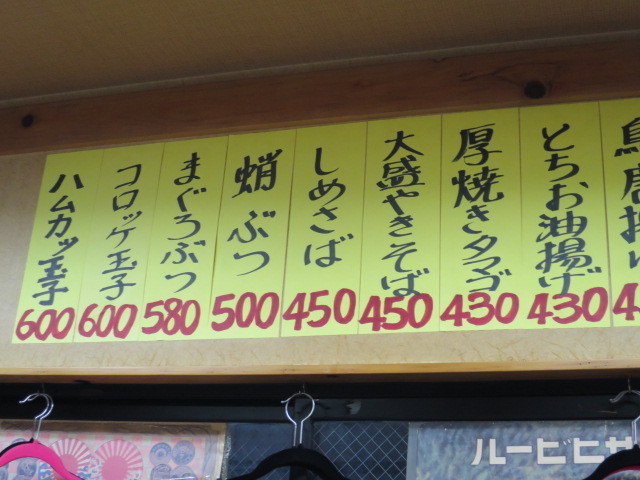 鳥唐揚げ
4
とちお油揚げ
430
厚焼きタマゴ
430
大盛やきそば
450
しめさば
450
蛸ぶつ
500
まぐろぶつ
580
コロッケ玉子
600
ハムカツ玉子
600
ルービヒサ